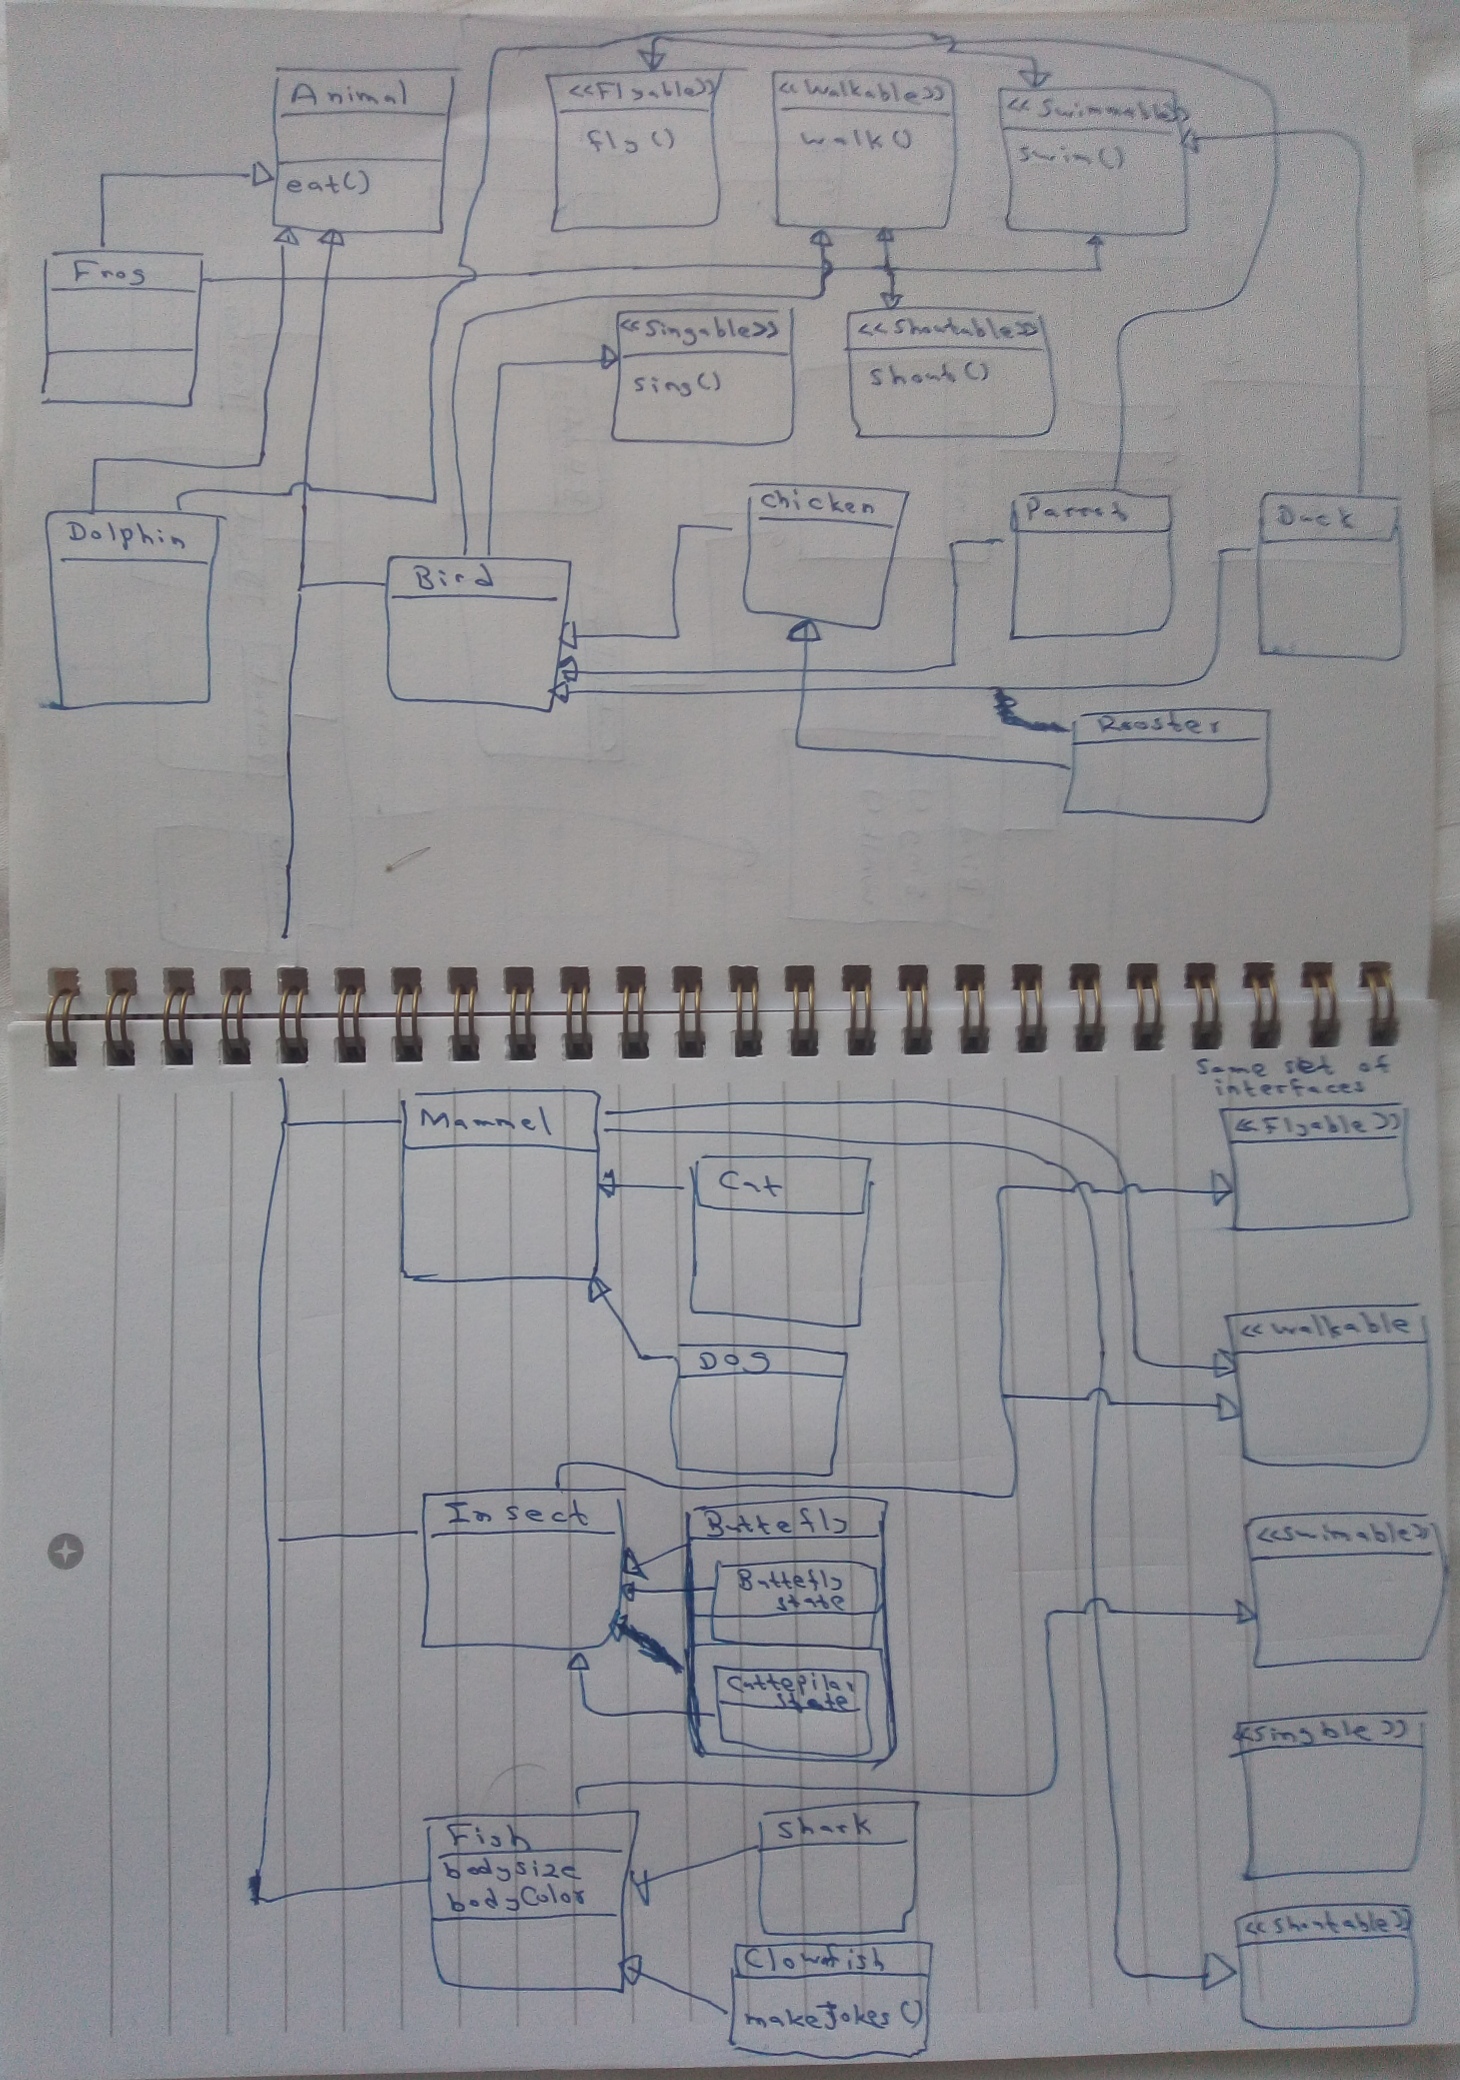 Animal
eat()
<<Flyable>>
fly()
<<Walkable>>
walk()
<<Swimmable>>
swim()
Frog
<<Singable>>
sing()
<<Shoutable>>
shout()
Dolphin
Bird
Chicken
Parrot
Duck
Rooster
Same set of
interfaces
Mammel
<<Flyable>>
Cat
<<Walkable
Dog
Insect
Buttefly
Buttefly
state
<<Swimable>>
Cattepilar
state
<<Singble>>
Fish
bodysize
bodyColor
Shark
<<Shoutable>>
Clownfish
makeJokes()